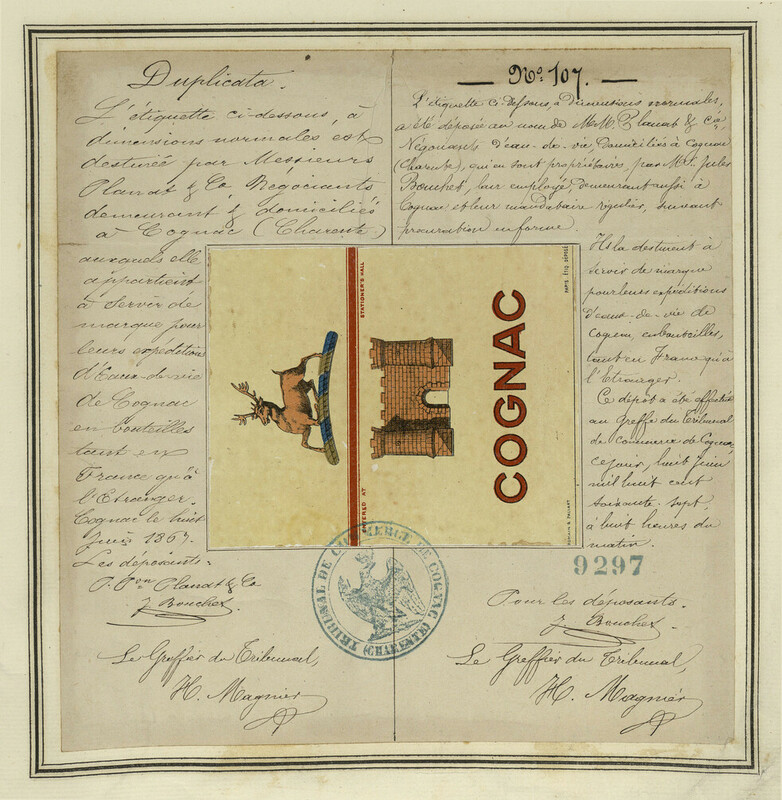 Duplicata.
L'étiquette ci-dessous, à
dimensions normales est
destinée par Messieurs
Planat & Co Négociants
demeurant & domiciliés
à Cognac (Charente)
auxquels elle
appartient
à servir de
marque pour
leurs expéditions
d'Eaux-de-vie
de Cognac
en bouteilles
tant en
France qu'à
l'Etranger.
Cognac le huit
Juin 1867.
Les déposants.
P. Pon Planat & Co
J. Bouchet
Le Greffier du Tribunal,
H. Magnier
— No. 107. —
L'étiquette ci-dessous, à dimensions normales,
a été déposée au nom de MM. Planat & Cie
Négociants d'eau-de-vie, domiciliés à Cognac
(Charente), qui en sont propriétaires, par M. Jules
Bouchet, leur employé, demeurant aussi à
Cognac et leur mandataire régulier, suivant
procuration en forme.
Ils la destinent à
servir de marque
pour leurs expéditions
d'eaux-de-vie de
Cognac, en bouteilles,
tant en France qu'à
l'Etranger.
Ce dépôt a été effectué
au Greffe du Tribunal
de commerce de Cognac,
ce jour, huit Juin
mil huit cent
soixante-sept,
à huit heures du
matin.
9297
Pour les déposants.
J. Bouchet
Le Greffier du Tribunal,
H. Magnier
STATIONER'S HALL
COGNAC
PARIS. ÉTIQ. DÉPOSÉ
TRIBUNAL DE COMMERCE DE COGNAC
(CHARENTE)